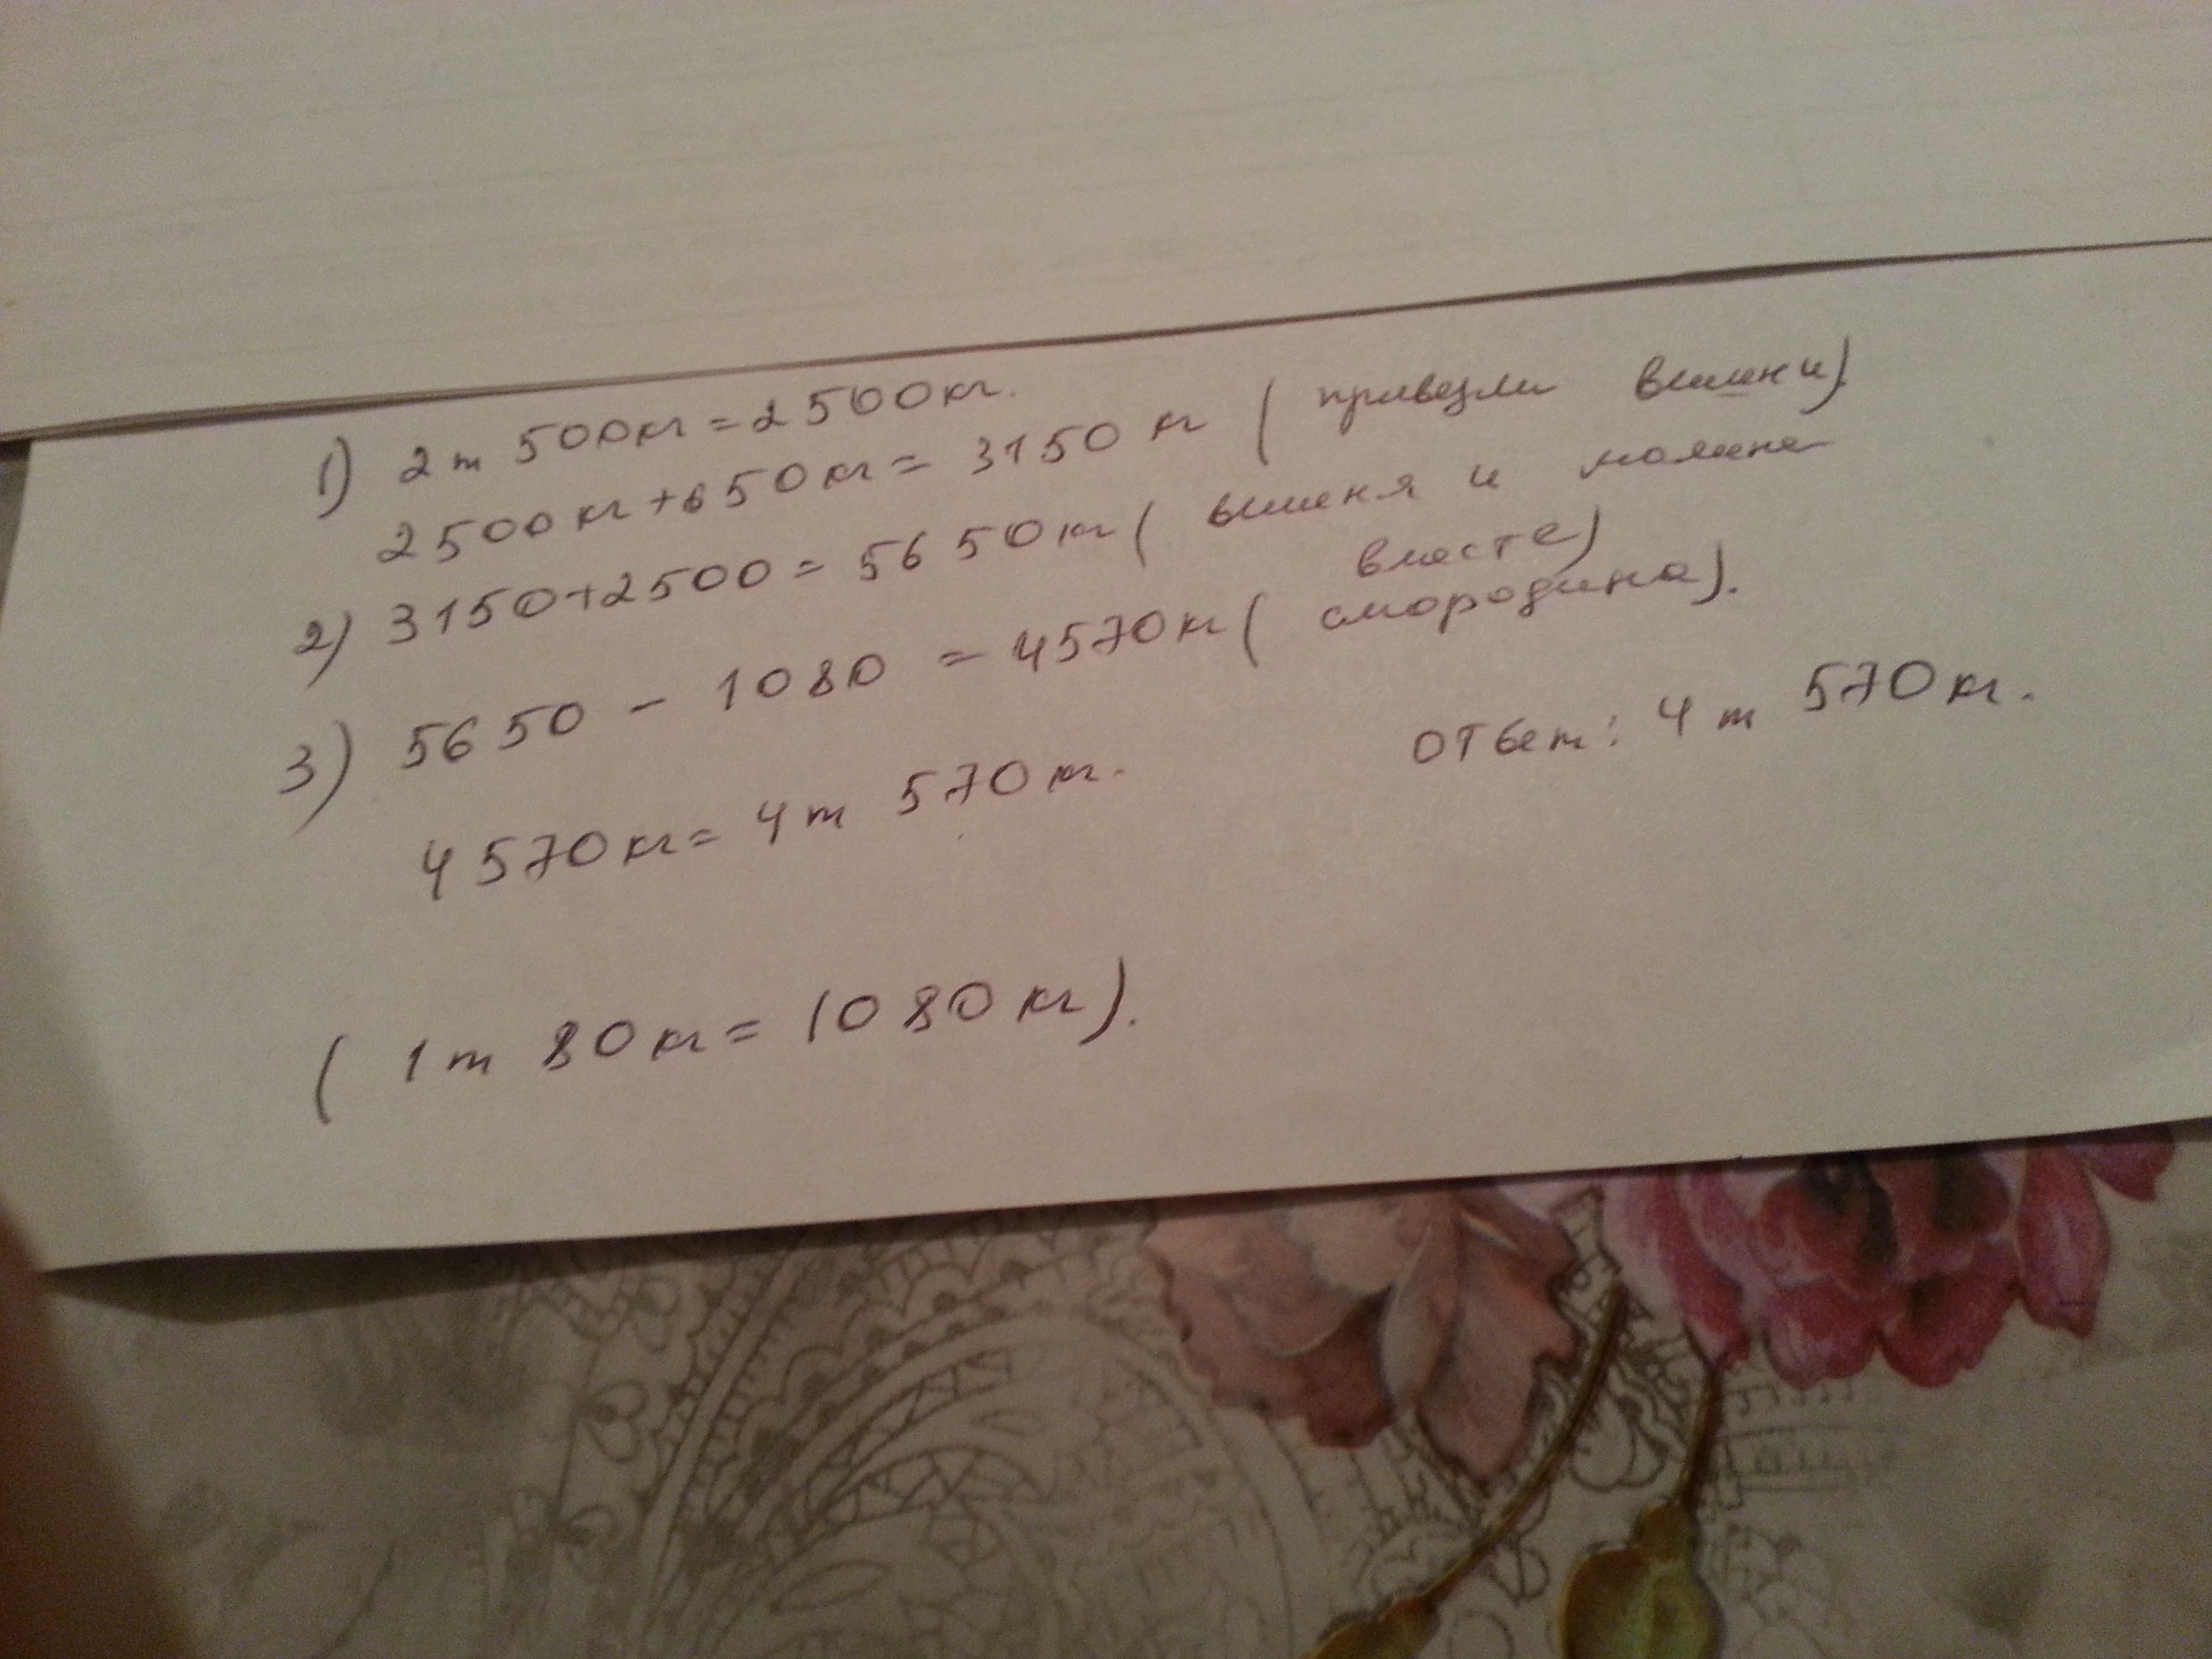 1) 2 т 500кг = 2500кг.
2500кг + 650кг = 3150 кг ( привезли вишни).
2) 3150+2500 = 5650кг ( вишня и малина
вместе)
3) 5650 - 1080 = 4570кг ( смородина).
4570кг = 4 т 570кг.
ответ: 4 т 570кг.
( 1 т 80кг = 1080кг).